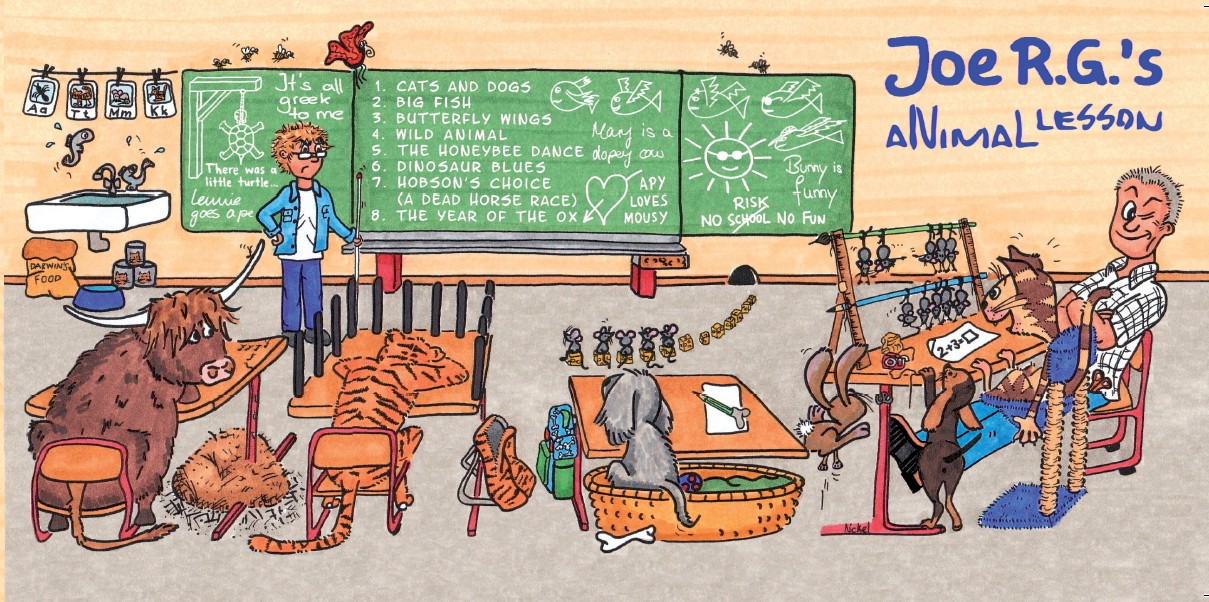 Joe R.G.'s
aNimal Lesson
Aa
Tt
Mm
Kk
It's all
greek
to me
There was a
little turtle...
Lennie
goes ape
1. CATS AND DOGS
2. BIG FISH
3. BUTTERFLY WINGS
4. WILD ANIMAL
5. THE HONEYBEE DANCE
6. DINOSAUR BLUES
7. HOBSON'S CHOICE
(A DEAD HORSE RACE)
8. THE YEAR OF THE OX
Mary is a
dopey cow
APY
LOVES
MOUSY
Bunny is
funny
RISK
NO SCHOOL NO FUN
DARWIN'S
FOOD
2+3=
Nickel